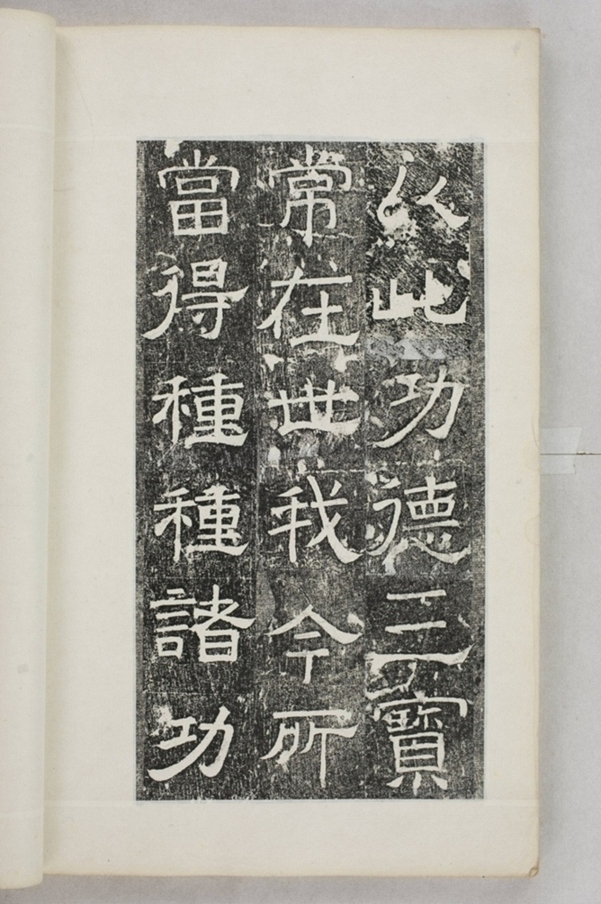 以此功德三寶
常在世我今所
當得種種諸功